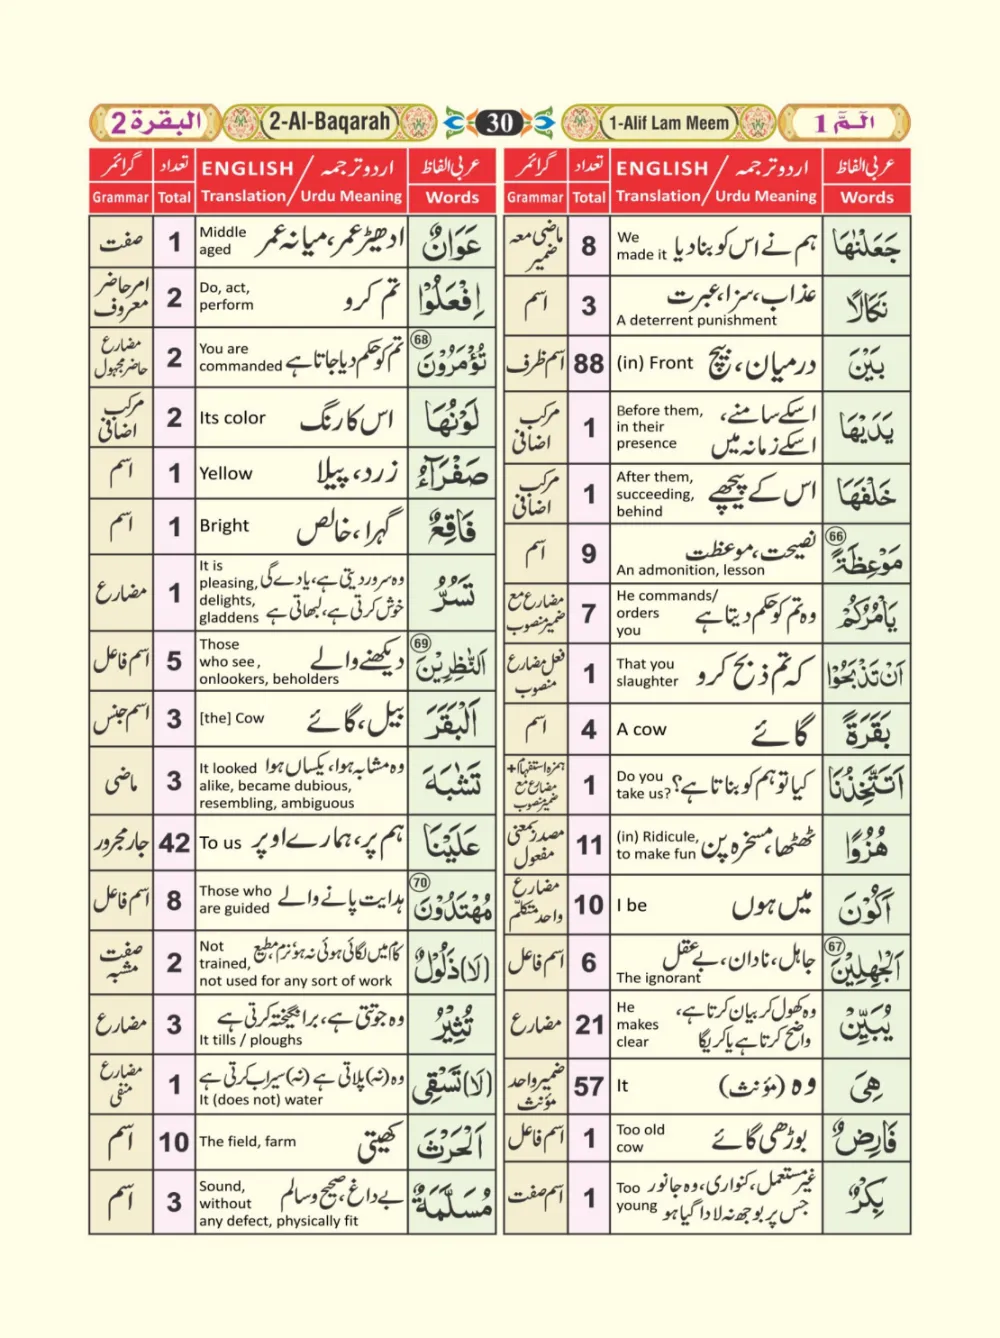 البقرة 2
2-Al-Baqarah
30
1-Alif Lam Meem
الٓمّٓ 1
عربی الفاظ اردو ترجمہ / ENGLISH تعداد گرائمر
Words Urdu Meaning / Translation Total Grammar
جَعَلْنٰهَا ہم نے اس کو بنا دیا We made it 8 ماضی معہ ضمیر
نَكَالًا عذاب، سزا، عبرت A deterrent punishment 3 اسم
بَيْنَ درمیان، بیچ (in) Front 88 اسم ظرف
يَدَيْهَا اسکے سامنے، اسکے زمانہ میں Before them, in their presence 1 مرکب اضافی
خَلْفَهَا اس کے پیچھے After them, succeeding, behind 1 مرکب اضافی
مَوْعِظَةً 66 نصیحت، موعظت An admonition, lesson 9 اسم
يَاْمُرُكُمْ وہ تم کو حکم دیتا ہے He commands/ orders you 7 مضارع مع ضمیر منصوب
اَنْ تَذْبَحُوْا کہ تم ذبح کرو That you slaughter 1 فعل مضارع منصوب
بَقَرَةً گائے A cow 4 اسم
اَتَتَّخِذُنَا کیا تو ہم کو بناتا ہے؟ Do you take us? 1 ہمزہ استفہام + مضارع مع ضمیر منصوب
هُزُوًا ٹھٹھا، مسخرہ پن (in) Ridicule, to make fun 11 مصدر بمعنی مفعول
اَكُوْنَ میں ہوں I be 10 مضارع واحد متکلم
الْجٰهِلِيْنَ 67 جاہل، نادان، بے عقل The ignorant 6 اسم فاعل
يُبَيِّنْ وہ کھول کر بیان کرتا ہے، واضح کرتا ہے یا کریگا He makes clear 21 مضارع
هِىَ وہ (مؤنث) It 57 ضمیر واحد مؤنث
فَارِضٌ بوڑھی گائے Too old cow 1 اسم فاعل
بِكْرٌ غیر مستعمل، کنواری، وہ جانور جس پر بوجھ نہ لادا گیا ہو Too young 1 اسم صفت
عربی الفاظ اردو ترجمہ / ENGLISH تعداد گرائمر
Words Urdu Meaning / Translation Total Grammar
عَوَانٌ ادھیڑ عمر، میانہ عمر Middle aged 1 صفت
اِفْعَلُوْا تم کرو Do, act, perform 2 امر حاضر معروف
تُؤْمَرُوْنَ 68 تم کو حکم دیا جاتا ہے You are commanded 2 مضارع حاضر مجہول
لَوْنُهَا اس کا رنگ Its color 2 مرکب اضافی
صَفْرَآءُ زرد، پیلا Yellow 1 اسم
فَاقِعٌ گہرا، خالص Bright 1 اسم
تَسُرُّ وہ سرور دیتی ہے، یا دے گی خوش کرتی ہے، لبھاتی ہے It is pleasing, delights, gladdens 1 مضارع
النّٰظِرِيْنَ 69 دیکھنے والے Those who see, onlookers, beholders 5 اسم فاعل
اَلْبَقَرَ بیل، گائے [the] Cow 3 اسم جنس
تَشٰبَهَ وہ مشابہ ہوا، یکساں ہوا It looked alike, became dubious, resembling, ambiguous 3 ماضی
عَلَيْنَا ہم پر، ہمارے اوپر To us 42 جار مجرور
مُهْتَدُوْنَ 70 ہدایت پانے والے Those who are guided 8 اسم فاعل
(لَا) ذَلُوْلٌ کام میں لگائی ہوئی نہ ہو نرم، مطیع Not trained, not used for any sort of work 2 صفت مشبہ
تُثِيْرُ وہ جوتتی ہے، برانگیختہ کرتی ہے It tills / ploughs 3 مضارع
(لَا) تَسْقِى وہ (نہ) پلاتی ہے (نہ) سیراب کرتی ہے It (does not) water 1 مضارع منفی
اَلْحَرْثَ کھیتی The field, farm 10 اسم
مُسَلَّمَةٌ بے داغ، صحیح و سالم Sound, without any defect, physically fit 3 اسم